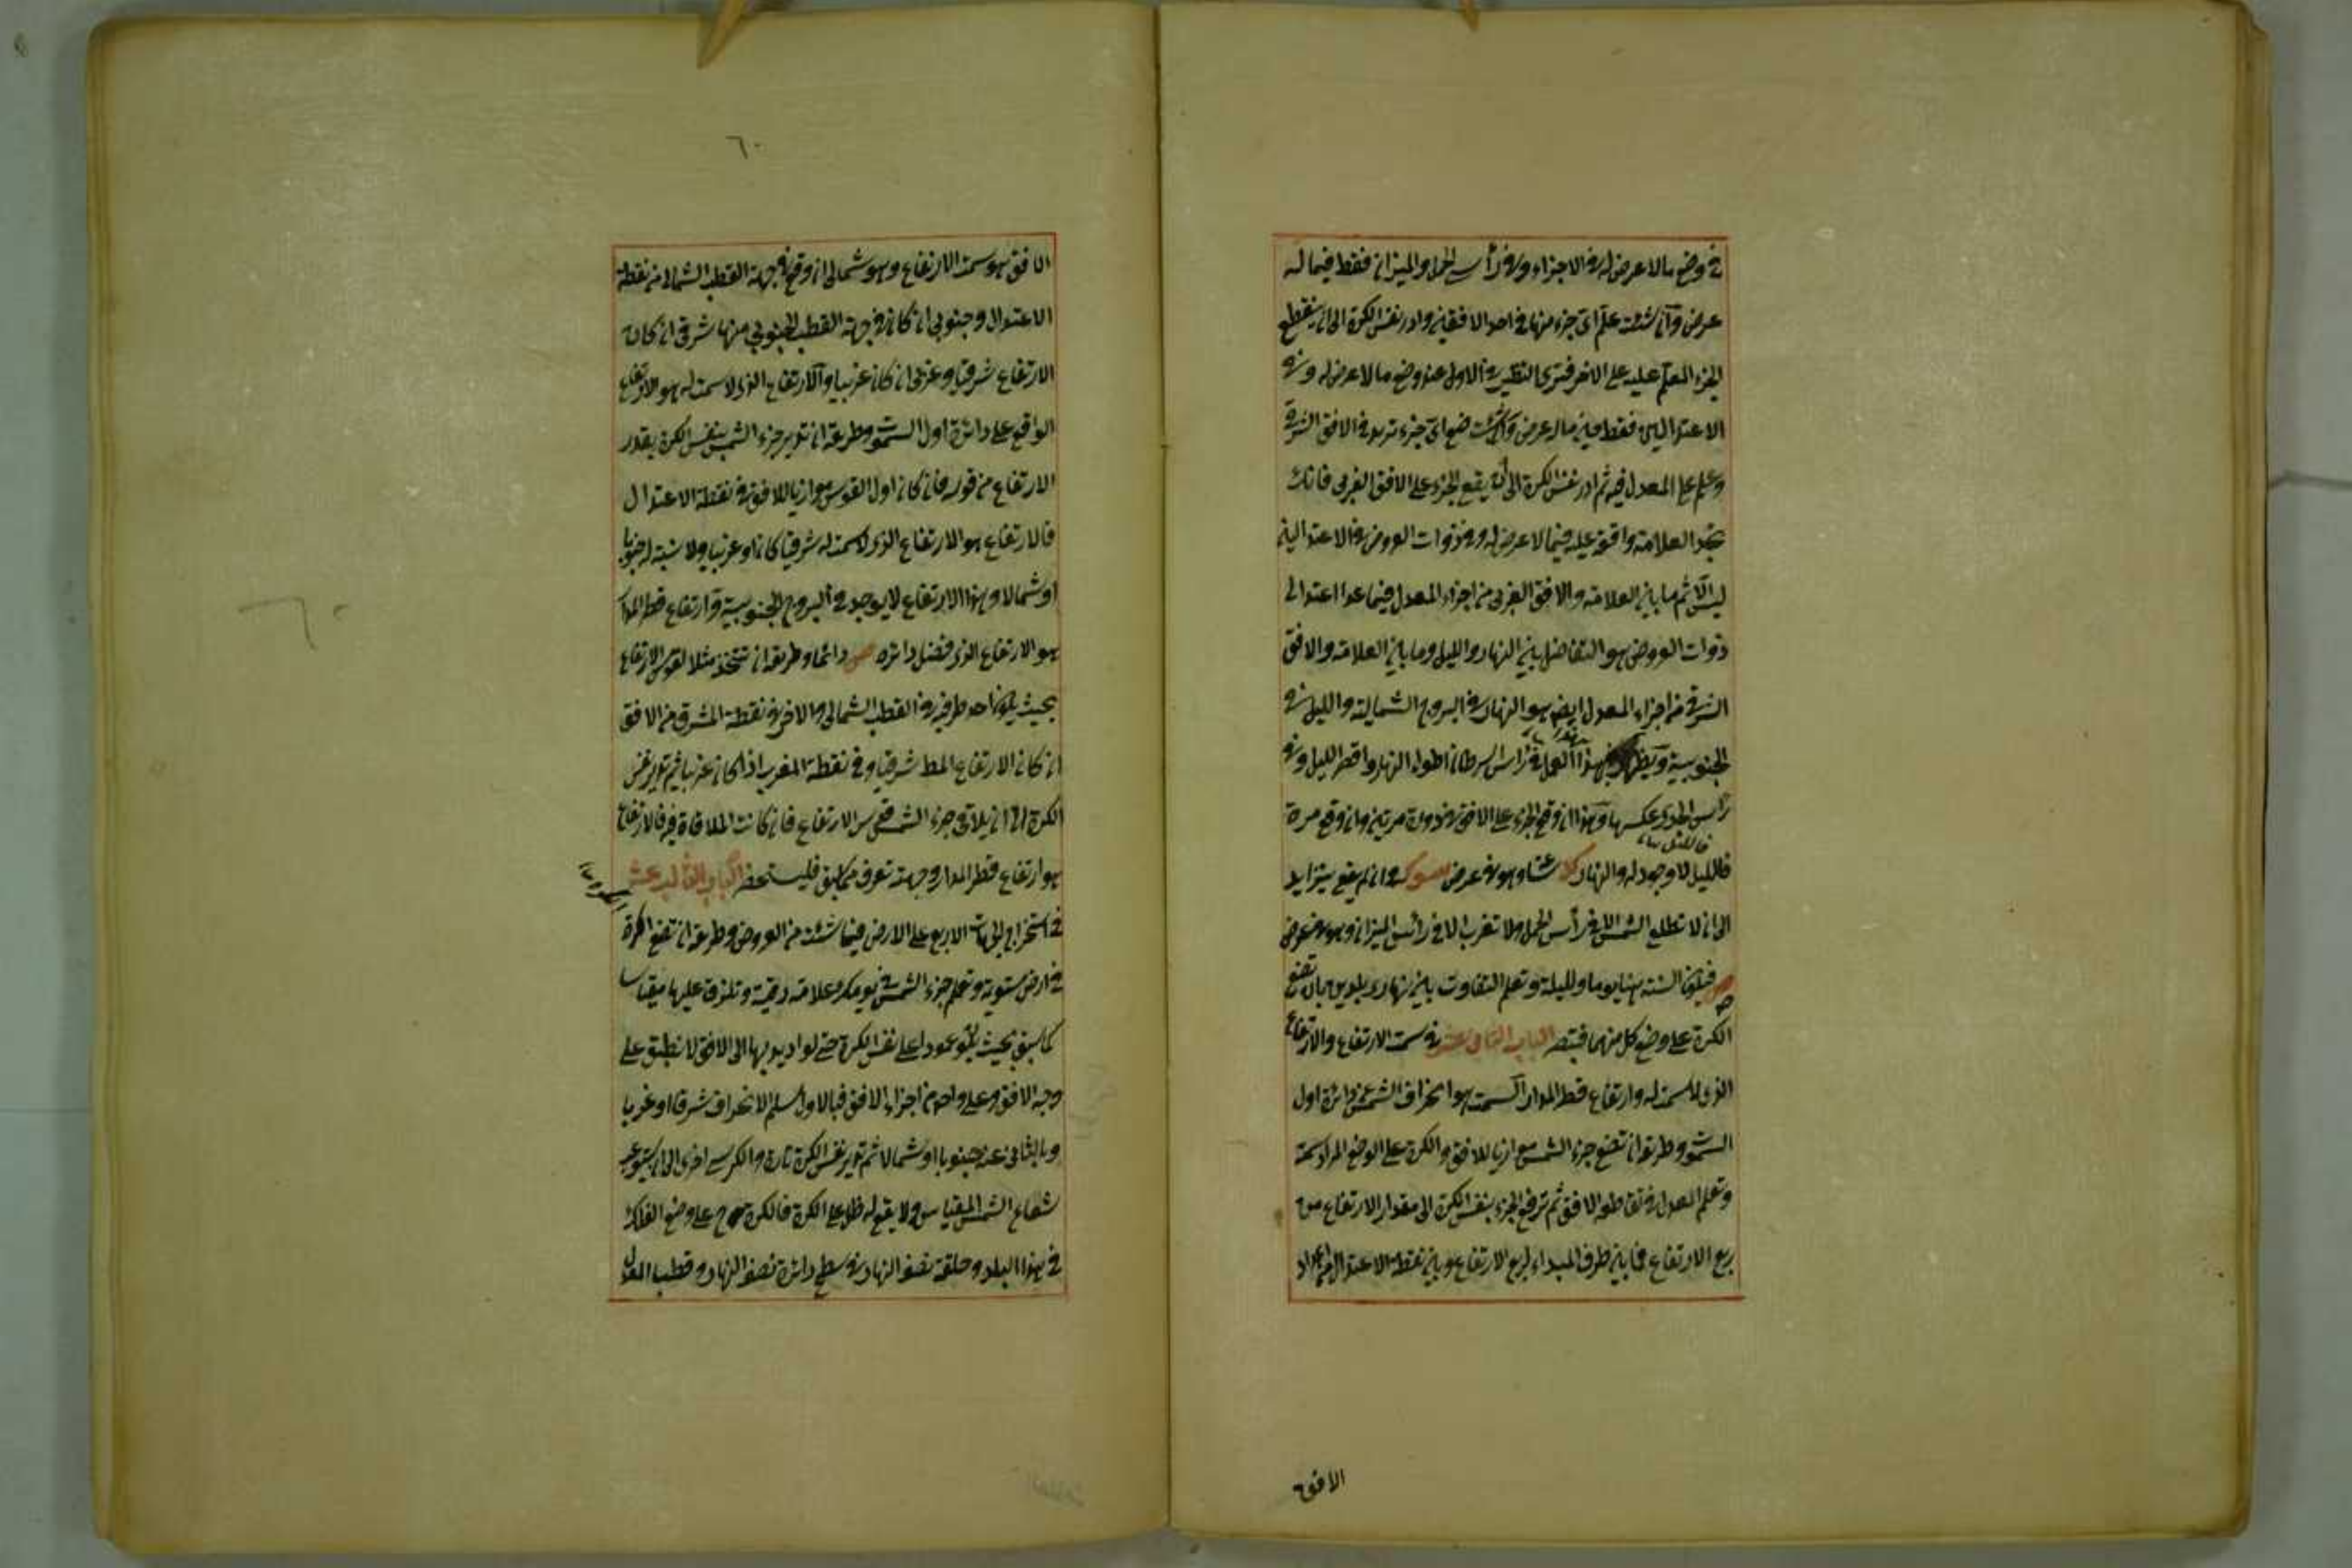 في وضع مالا عرض له في الاجزاء وفي رأس الحمل والميزان فقط فيما له
عرض وان شئت علّم اى جزء منها في احد الافقين وادر نفس الكرة الى ان ينقطع
الجزء المعلم عليه على الاخر فترى النظير في الاول عند وضع مالا عرض له وفي
الاعتدالين فقط فيما له عرض وان شئت ضع اى جزء تريد في الافق الشرقي
وعلم على المعدل فيه ثم ادر نفس الكرة الى ان يقع الجزء على الافق الغربي فانك
تجد العلامة واقعة عليه فيما لا عرض له وفي ذوات العروض في الاعتدالين
ليس الا ثم ما بين العلامة والافق الغربي من اجزاء المعدل فيما عدا اعتدالى
ذوات العروض هو التفاضل بين النهار والليل وما بين العلامة والافق
الشرقي من اجزاء المعدل ايضا هو النهار في البروج الشمالية والليل في
الجنوبية ويظهر بهذا العمل في راس السرطان اطول النهار واقصر الليل وفي
راس الجدى عكسها وهذا ان وقع الجزء على الافق في دورة مرتين وان وقع مرة
فالليل لا وجود له والنهار وهو في عرض وان لم يقع يتزايد
الى ان لا تطلع الشمس الا في رأس الحمل ولا تغرب الا في رأس الميزان وهو في عرض
ص فتكون السنة هنا يوما وليلة وتعلم التفاوت بين نهارى بلدين بان تضع
الكرة على وضع كل منهما فتبصر الباب الثاني عشر في سمت الارتفاع والارتفاع
الذى لا سمت له وارتفاع قطر المدار السمت هو انحراف الشمس عن دائرة اول
السموت وطريقه ان تضع جزء الشمس موازيا للافق والكرة على الوضع المراد سمته
وتعلم المعدل في تقاطع الافق ثم ترفع الجزء بنفس الكرة الى مقدار الارتفاع من
ربع الارتفاع فما بين طرف المبداء لربع الارتفاع وبين نقطة الاعتدال من اعداد
الافق
٦٠
الافق هو سمت الارتفاع وهو شمالي ان وقع في جهة القطب الشمالي من نقطة
الاعتدال وجنوبي ان كان في جهة القطب الجنوبي منها شرقي ان كان
الارتفاع شرقيا وغربي ان كان غربيا والارتفاع الذى لا سمت له هو الارتفاع
الواقع على دائرة اول السموت وطريقه ان تدير جزء الشمس بنفس الكرة بقدر
الارتفاع من قوسه فان كان اول القوس موازيا للافق في نقطة الاعتدال
فالارتفاع هو الارتفاع الذى لا سمت له شرقيا كان او غربيا ولا نسبة له جنوبا
او شمالا وهذا الارتفاع لا يوجد في البروج الجنوبية وارتفاع قطر المدار
هو الارتفاع الذى فضل دائره ص دائما وطريقه ان تتخذ مثلا لقوس الارتفاع
بحيث يكون احد طرفيه في القطب الشمالي والاخر في نقطة المشرق من الافق
ان كان الارتفاع المط شرقيا وفي نقطة المغرب اذا كان غربيا ثم تدير نفس
الكرة الى ان يلاقي جزء الشمس قوس الارتفاع فان كانت الملاقاة فيه فالارتفاع
هو ارتفاع قطر المدار وجهته تعرف مما سبق فليستحضر الباب الثالث عشر
في استخراج الجهات الاربع على الارض فيما شئت من العروض وطريقه ان تضع الكرة
في ارض مستوية وتعلم جزء الشمس في يومك علامة دقيقة وتلزق عليها مقياسا
كما سبق بحيث يكون عمودا على نفس الكرة حتى لو ادير بها الى الافق لانطبق على
وجه الافق وعلى واحد من اجزاء الافق فبالاول يسلم الانحراف شرقا او غربا
وبالثاني عنه جنوبا او شمالا ثم تدير نفس الكرة تارة والكرسي اخرى الى ان يستوعب
شعاع الشمس المقياس ولا يقع له ظل على الكرة فالكرة ح على وضع الفلك
في هذا البلد وحلقة نصف النهار في سطح دائرة نصف النهار وقطب المعدل
٦٠